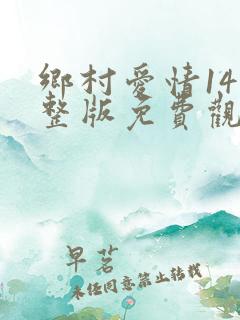 鄉村愛情14
整版免費觀
早茗
未经同意禁止转载